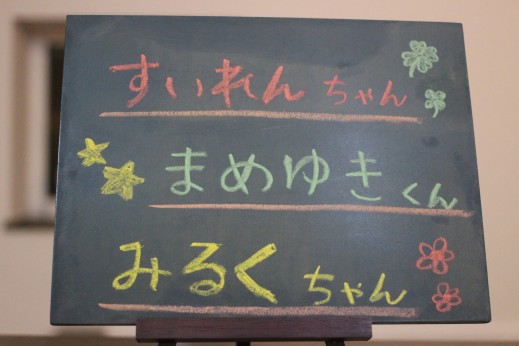 すいれんちゃん
まめゆきくん
みるくちゃん